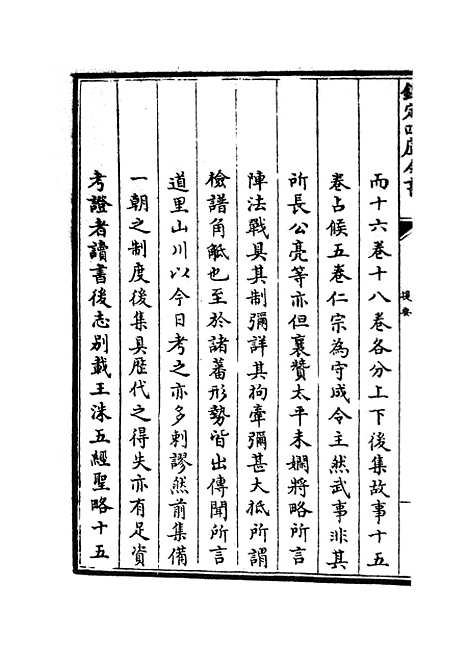 欽定四庫全書
提要
而十六卷十八卷各分上下後集故事十五
卷占候五卷仁宗為守成令主然武事非其
所長公亮等亦但襄贊太平未嫻將略所言
陣法戰具其制彌詳其拘牽彌甚大抵所謂
檢譜角觝也至於諸蕃形勢皆出傳聞所言
道里山川以今日考之亦多剌謬然前集備
一朝之制度後集具歷代之得失亦有足資
考證者讀書後志别載王洙五經聖略十五